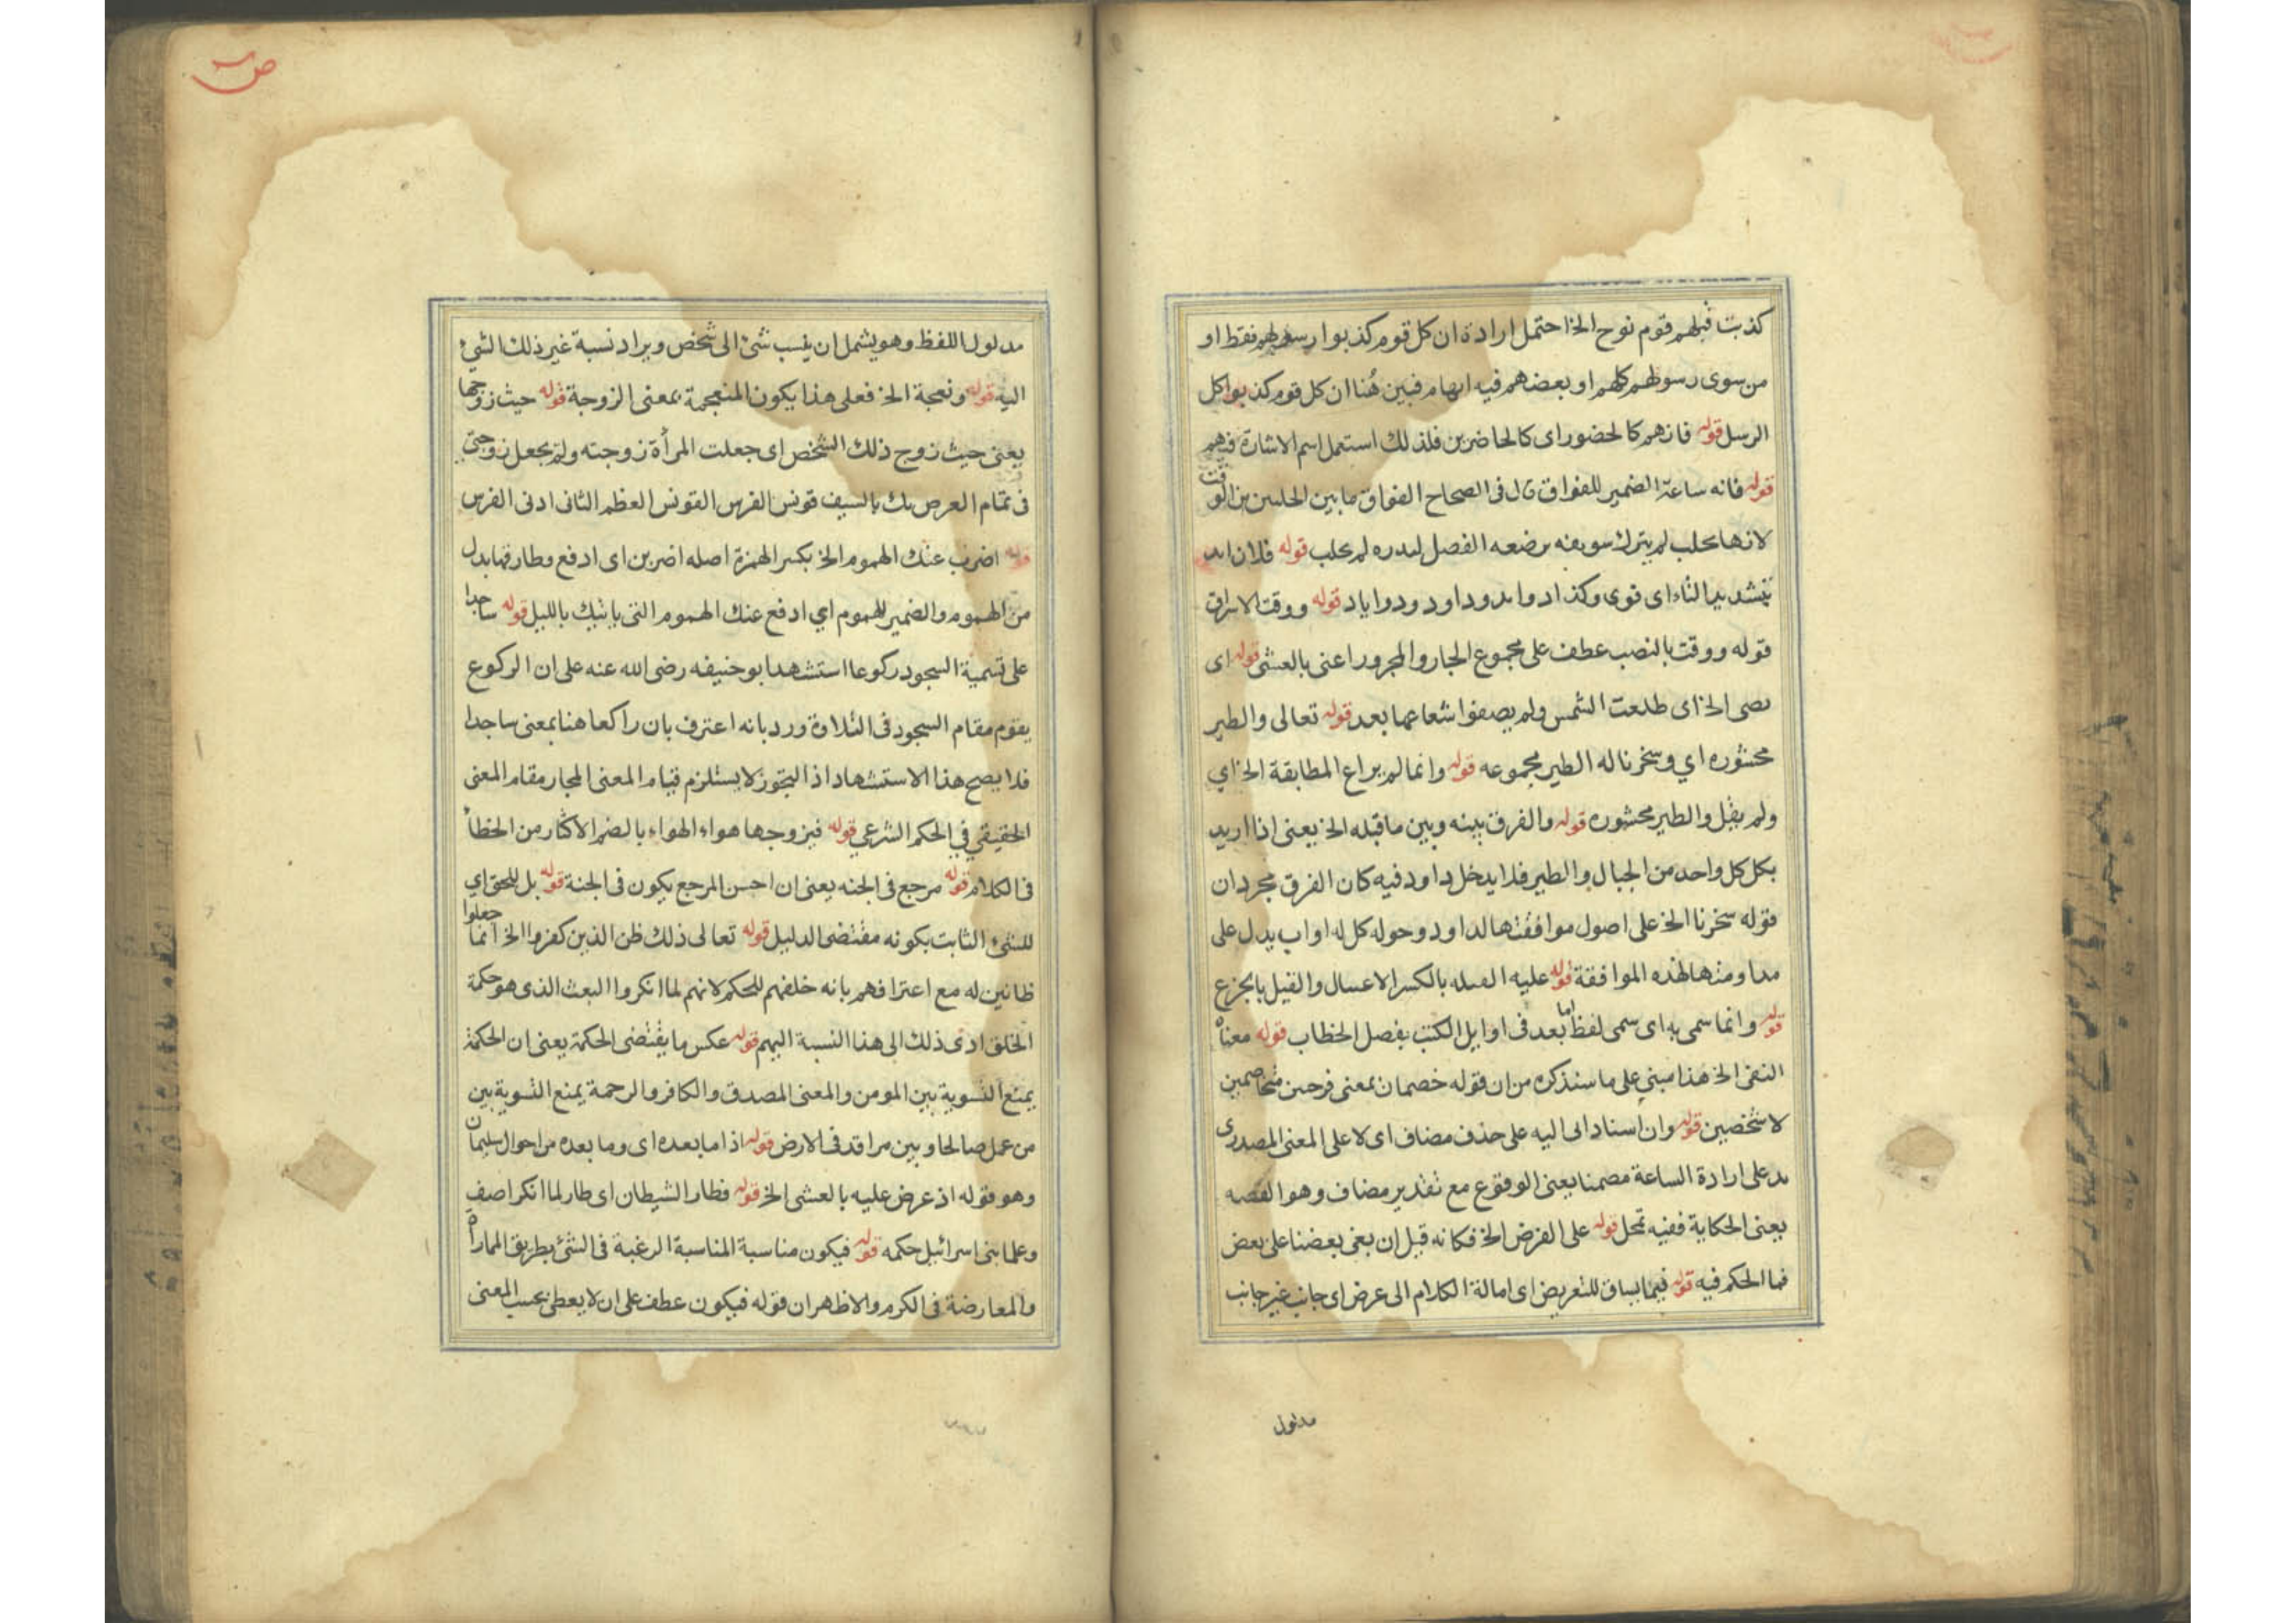 كذبت قبلهم قوم نوح الخ احتمل ارادة ان كل قوم كذبوا رسولهم فقط او
من سوى رسولهم كلهم او بعضهم فيه ابهام فبين هُنا ان كل قوم كذبوا كل
الرسل قوله فانهم كالحضور اى كالحاضرين فلذلك استعمل اسم الاشارة فيهم
قوله فانه ساعة الضمير للفواق قال فى الصحاح الفواق ما بين الحلبتين من الوقت
لانها تحلب ثم يترك سويعة يرضعه الفصيل لتدره ثم يحلب قوله فلان ايد
بتشديد الياء اى قوى وكذا ذوا يد وداود وذو اياد قوله ووقت الاشراق
قوله ووقت بالنصب عطف على مجموع الجار والمجرور اعنى بالعشى قوله اى
الخ اى طلعت الشمس ولم يصفوا شعاعها بعد قوله تعالى والطير
محشوره اي وسخرنا له الطير مجموعه قوله وانما لم يراع المطابقة الخ اي
ولم يقل والطير محشوره قوله والفرق بينه وبين ما قبله الخ يعنى اذا اريد
بكل كل واحد من الجبال والطير فلا يدخل داود فيه كان الفرق مجرد ان
قوله سخرنا الخ على اصول موافقتها لداود وحوله كل له اواب يدل على
مداومتها لهذه الموافقة قوله عليه بالكسر الاغتيال والقيل بالجزع
قوله وانما سمى به اى سمى لفظ اما بعد فى اوايل الكتب بفصل الخطاب قوله معناه
النفى الخ هذا مبني على ما سنذكره من ان قوله خصمان بمعنى فوجين متخاصمين
لا شخصين قوله وان اسناد اتى اليه على حذف مضاف اى لا على المعنى المصدرى
بد على ارادة الساعة مضمنا بعنى الوقوع مع تقدير مضاف وهو القصه
بعنى الحكاية ففيه تمحل قوله على الفرض الخ فكانه قيل ان بغى بعضنا على بعض
فما الحكم فيه قوله فيما يساق للتعريض اى امالة الكلام الى عرض اى جانب غير جانب
مدلول
ص
مدلول اللفظ وهو يشمل ان ينسب شئ الى شخص ويراد نسبة غير ذلك الشئ
اليه قوله ونعجة الخ فعلى هذا يكون النعجة بمعنى الزوجة قوله حيث زوجها
يعنى حيث زوج ذلك الشخص اى جعلت المرأة زوجته ولم يجعل زوجتى
فى تمام العرض بك بالسيف قونس الفرس القونس العظم الثانى ادنى الفرس
قوله اضرب عنك الهموم الخ بكسر الهمزة اصله اضربن اى ادفع وطارقها بدل
من الهموم والضمير للهموم اي ادفع عنك الهموم التى ياتيك بالليل قوله ساجدا
على تسمية السجود ركوعا استشهد ابو حنيفه رضى الله عنه على ان الركوع
يقوم مقام السجود فى التلاوة ورد بانه اعترف بان راكعا هنا بمعنى ساجدا
فلا يصح هذا الاستشهاد اذ التجوز لا يستلزم قيام المعنى المجاز مقام المعنى
الحقيقي في الحكم الشرعي قوله فيزوجها هواء الهواء بالضم الاكثار من الخطأ
فى الكلام قوله مرجع فى الجنه يعنى ان احسن المرجع يكون فى الجنة قوله بل للحق اي
للشئ الثابت بكونه مقتضى الدليل قوله تعالى ذلك ظن الذين كفروا الخ انما جعلوا
ظانين له مع اعترافهم بانه خلقهم للحكم لانهم لما انكروا البعث الذى هو حكمة
الخلق ادى ذلك الى هذا النسبة اليهم قوله عكس ما يقتضى الحكمة يعنى ان الحكمة
يمنع التسوية بين المومن والمعنى المصدق والكافر والرحمة يمنع التسوية بين
من عمل صالحا وبين من افسد فى الارض قوله اذ ما بعده اى وما بعده من احوال سليمان
وهو قوله اذ عرض عليه بالعشى الخ قوله فطار الشيطان اى طار لما انكر اصف
وعلما بنى اسرائيل حكمه قوله فيكون مناسبة المناسبة الرغبة فى الشئ بطريق المماراة
والمعارضة فى الكرم والاظهر ان قوله فيكون عطف على ان لا يعطى بحسب المعنى